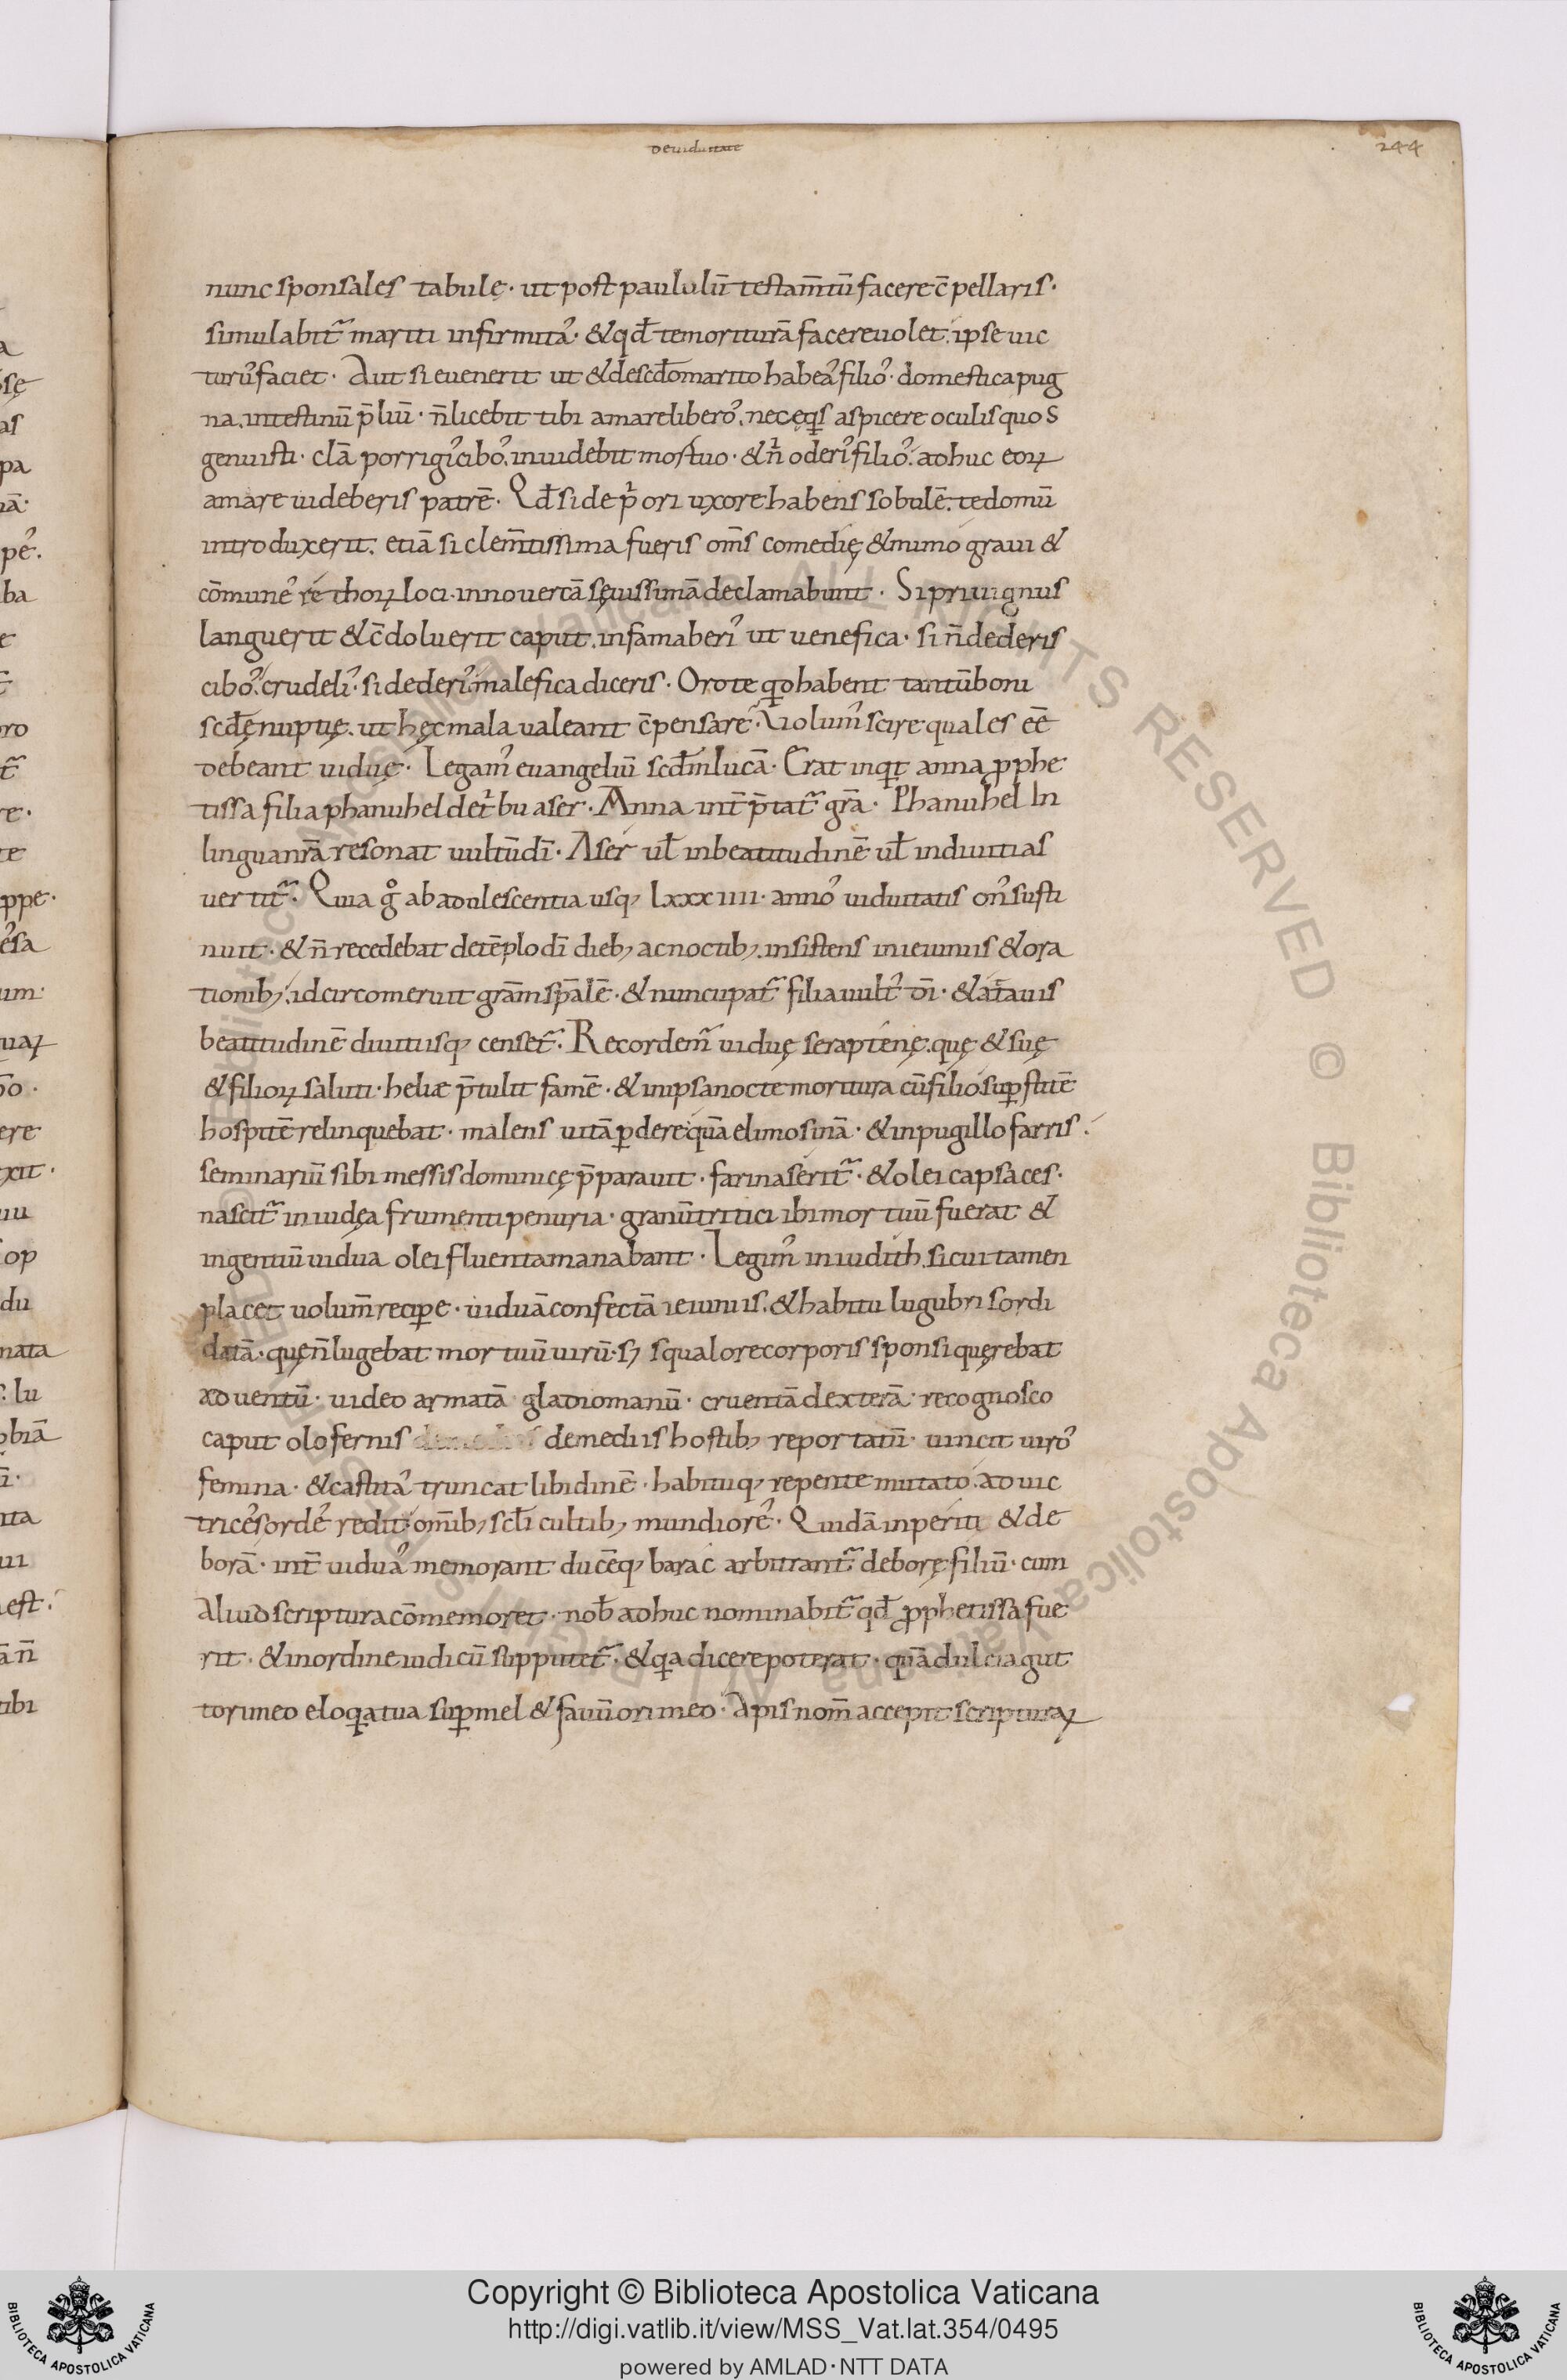 De uiduitate
244
nunc sponsales tabulę · ut post paululū testam̄tū facere c̄pellaris ·
simulabit᷑ mariti infirmitaˀ · & qđ te moriturā facere uolet · ipse uic
turuˀ faciet · Aut si euenerit ut & de scđo marito habeaˀ filioˀ · domestica pug
na, intestinū p̄liū · n̄ licebit tibi amare liberoˀ, nec ęqͥs aspicere oculis quos
genuisti · clā porrigiˀ ciboˀ, inuidebit mortuo · & nͥ oderiˀ filioˀ · adhuc eoꝝ
amare uideberis patrē · Qđ si de pͥori uxore habens sobulē · te domū
introduxerit · etiā si clem̄tissima fueris om̄s comedię & mimo graui &
cōmuneˀ rethoꝝ loci · in nouercā sęuissimā declamabunt · Si priuignus
languerit & c̄doluerit caput · infamaberiˀ ut uenefica · si n̄ dederis
ciboˀ · crudeliˀ · si dederiˀ · malefica diceris · Oro te qͥd habent tantū boni
scđę nuptię · ut hęc mala ualeant c̄pensare · Volumˀ scire quales eē
debeant uiduę · Legamˀ euangeliū scđm lucā · Erat inqͥt anna ꝓphe
tissa filia phanuhel de tͥbu aser · Anna int̄p̄tat᷑ gr̄a · Phanuhel In
lingua nr̄a resonat uultū dī · Aser uł in beatitudinē uł in diuitias
uertit᷑ · Quia gͦ ab adulescentia usqꝫ lxxxiiii · annoˀ uiduitatis onˀ susti
nuit · & n̄ recedebat de tēplo dī diebꝫ ac noctibꝫ, insistens in ieiuniis & ora
tionibꝫ, idcirco meruit gr̄am sp̄alē · & nuncupat᷑ filia uultˀ dī · & atauis
beatitudinē diuitiisqꝫ censet᷑ · Recordem᷑ uiduę serapténę · quę & suę
& filioꝝ saluti · heliæ p̄tulit famē · & in ipsa nocte moritura cū filio suꝑstitē
hospitē relinquebat · malens uitā ꝑdere quā elimosinā · & in pugillo farris ·
seminariū sibi messis dominicę p̄parauit · farina serit᷑ · & olei capsaces ·
nascit᷑ in iudęa frumenti penuria · granū tritici ibi mortuū fuerat &
in gentiū uidua olei fluenta manabant · Legimˀ in iudith, si cui tamen
placet uolum̄ reciꝑe · uiduā confectā ieiuniis · & habitu lugubri sordi
datā · quę n̄ lugebat mortuū uirū · sꝫ squalore corporis sponsi quęrebat
aduentū · uideo armatā gladio manū · cruentā dexterā · recognosco
caput olofernis de mediis hostibꝫ reportatū · uincit uiroˀ
femina · & castitaˀ truncat libidinē · habituqꝫ repente mutato · ad uic
triceˀ sordeˀ redit · om̄ibꝫ scłi cultibꝫ mundioreˀ · Quidā inperiti & de
borā · int̄ uiduaˀ memorant ducēqꝫ barac arbitrant᷑ deborę filiū · cum
aliud scriptura cōmemoret · nob̄ adhuc nominabit᷑ qđ ꝓphetissa fue
rit · & in ordine iudicū supputet᷑ · & qͥa dicere poterat · quā dulcia gut
turi meo eloqͥa tua suꝑ mel & fauū ori meo · Apis nom̄ accepit scripturaꝝ
Copyright © Biblioteca Apostolica Vaticana
http://digi.vatlib.it/view/MSS_Vat.lat.354/0495
powered by AMLAD·NTT DATA